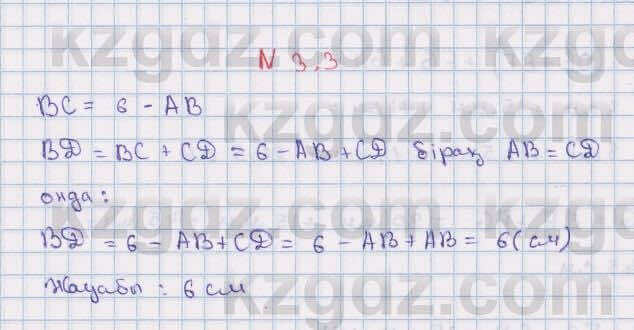 kzgdz.com kzgdz.com
N 3.3
BC = 6 - AB
kzgdz.com kzgdz.com
BD = BC + CD = 6 - AB + CD бірақ AB = CD
онда:
kzgdz.com kzgdz.com
BD = 6 - AB + CD = 6 - AB + AB = 6 (см)
Жауабы : 6 см
kzgdz.com kzgdz.com